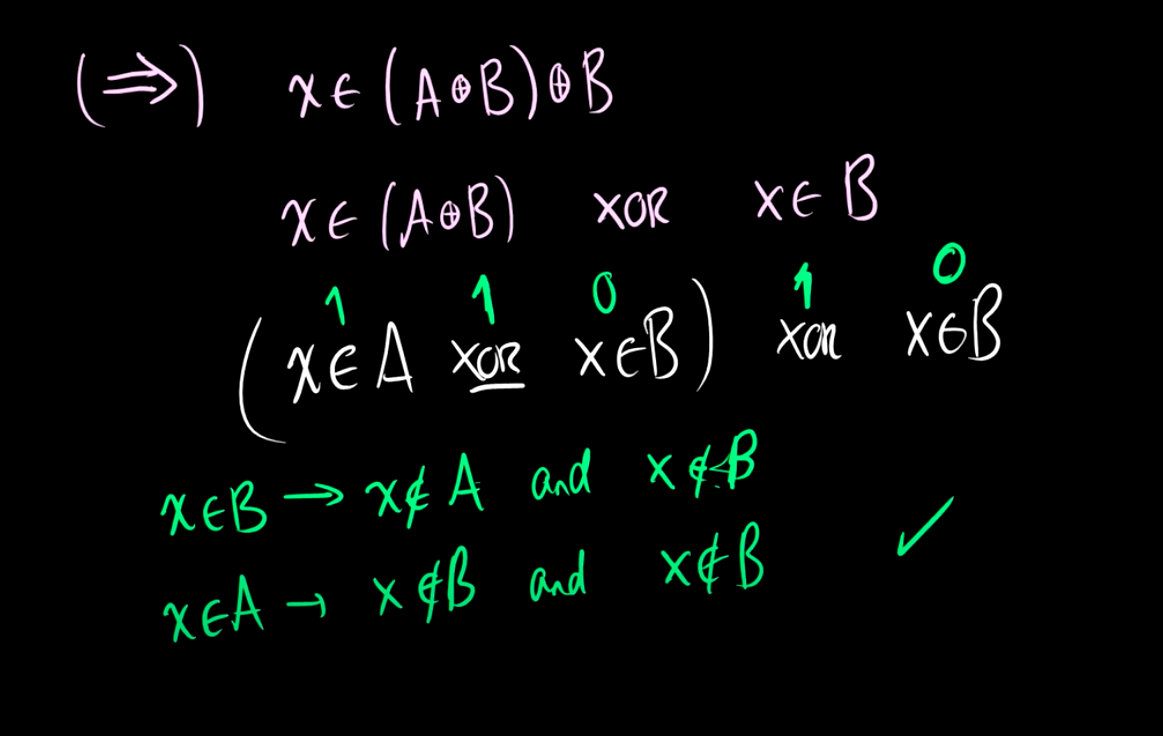 (⇒) x∈(A⊕B)⊕B
x∈(A⊕B) XOR x∈B
1 1 0 1 0
(x∈A XOR x∈B) XOR x∈B
x∈B → x∉A and x∉B
x∈A → x∉B and x∉B ✓